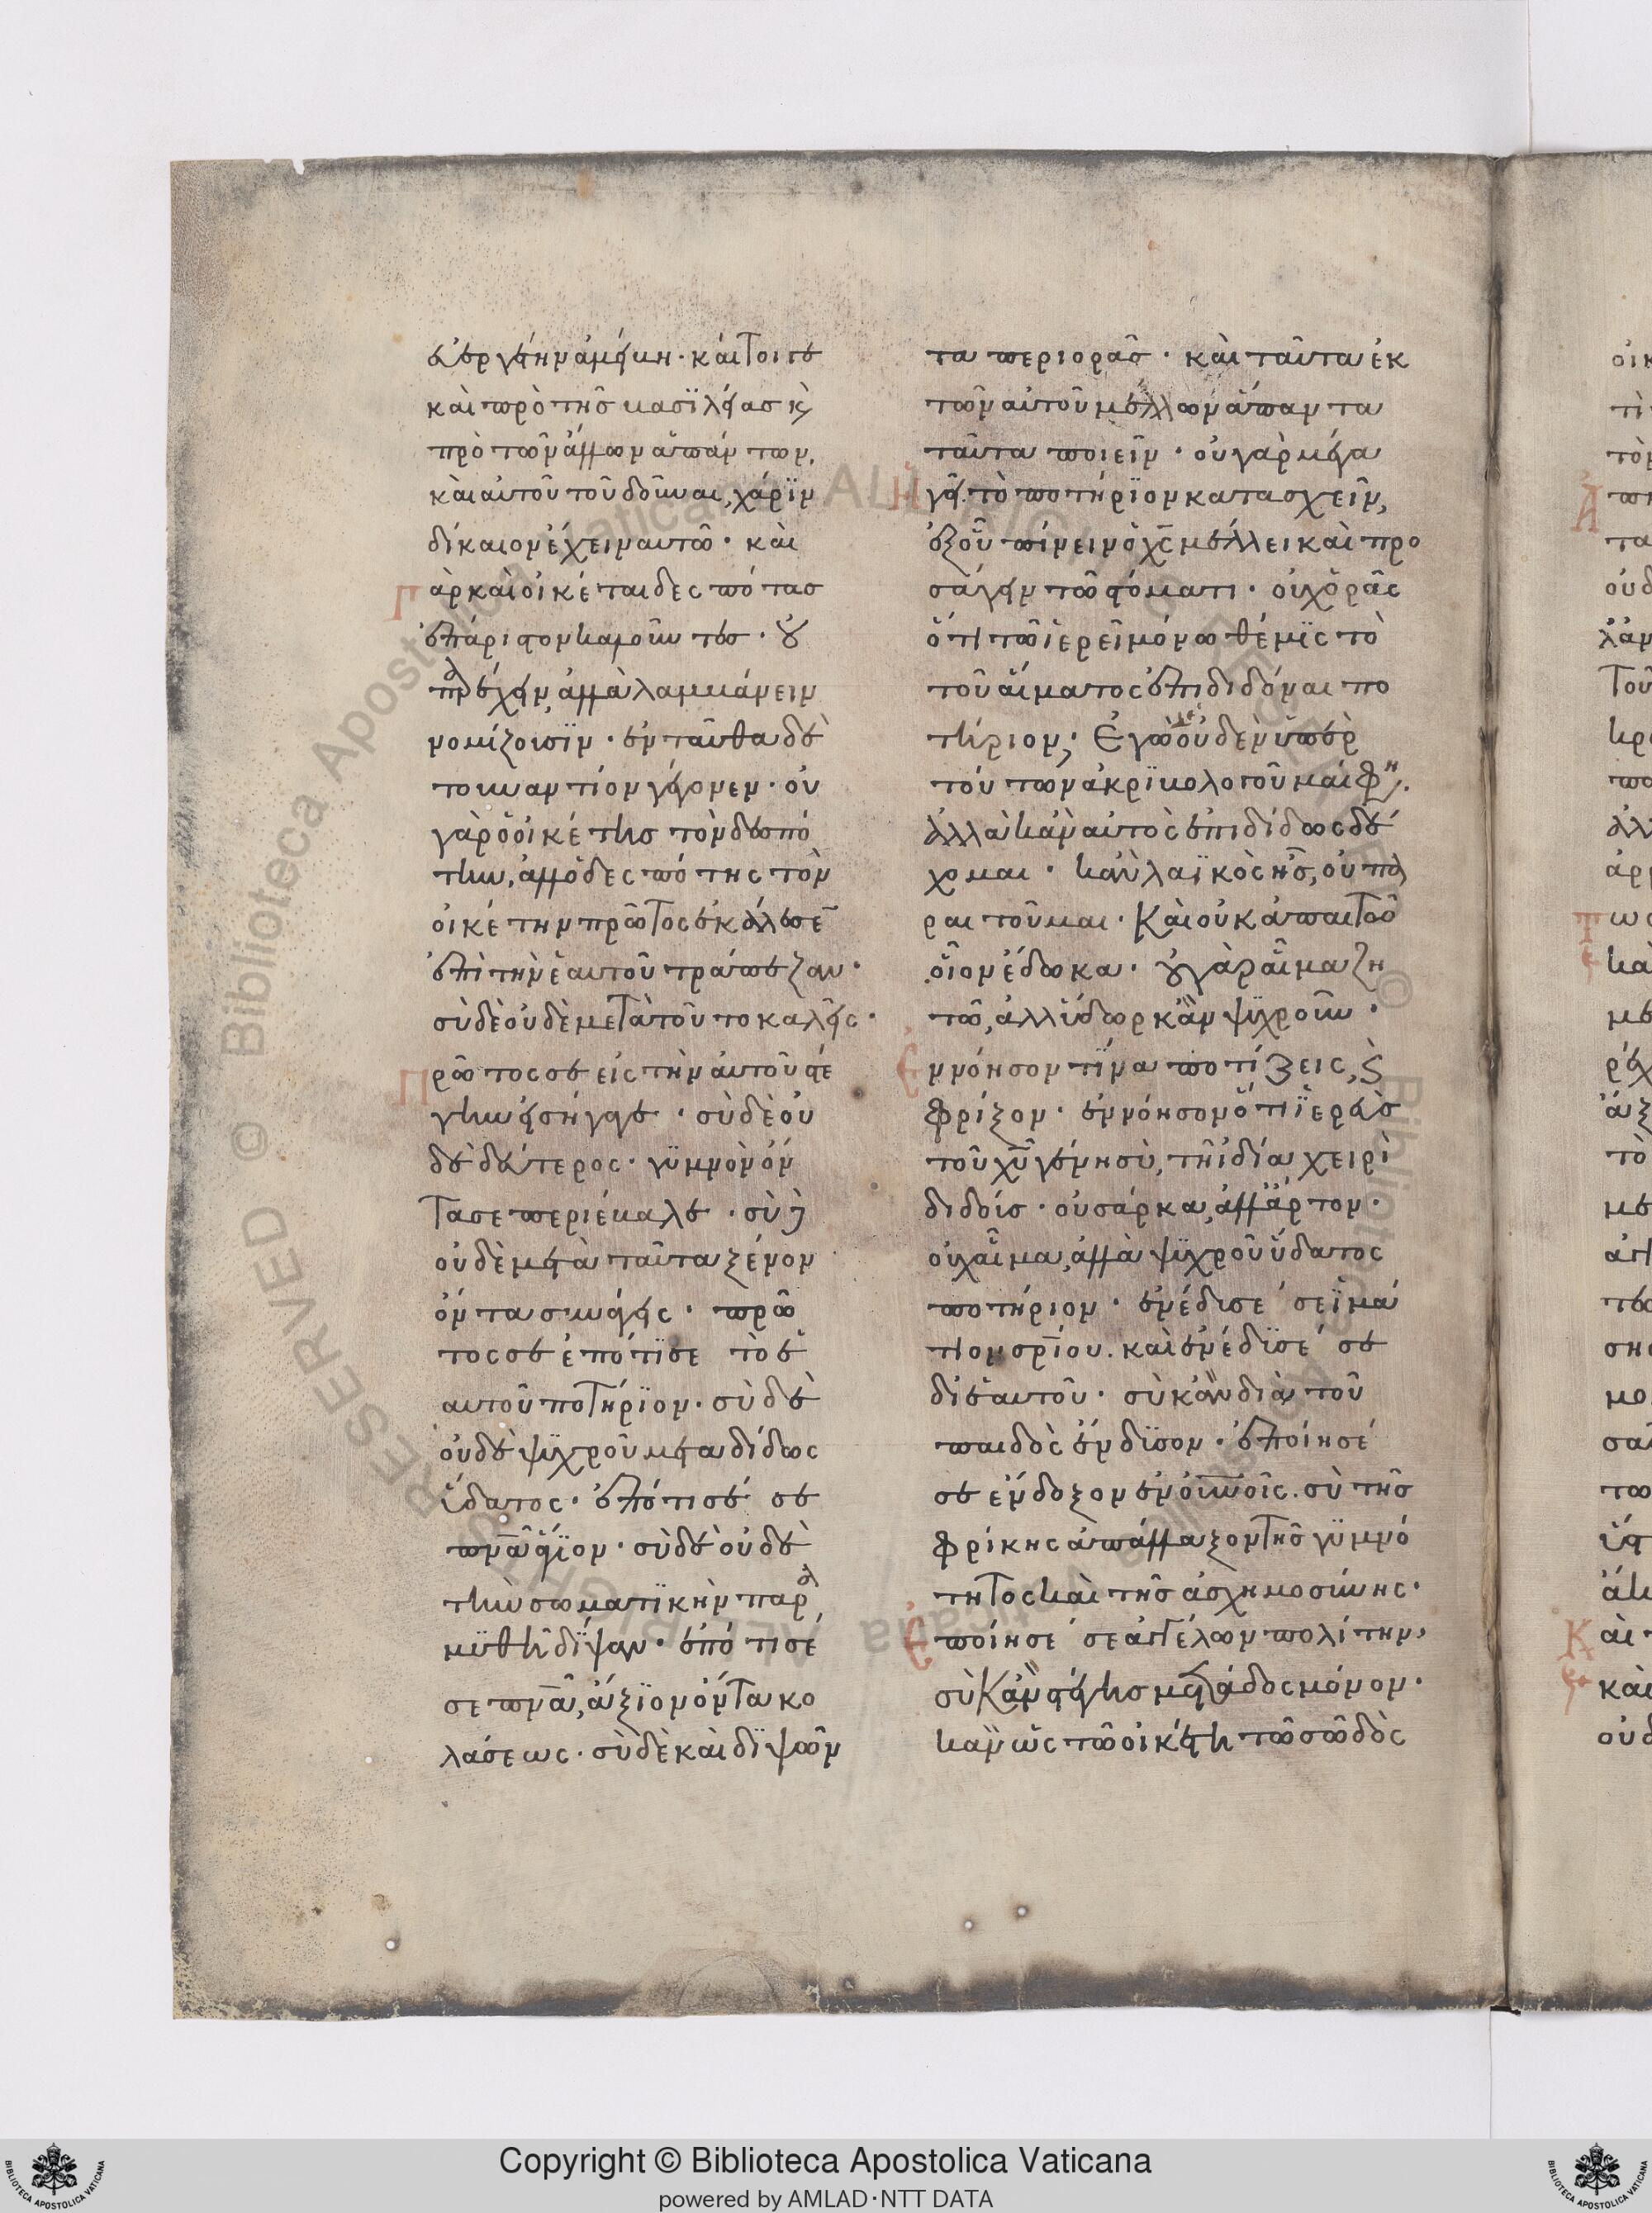 εὐεργετεῖν ἀμείβῃ· καίτοιγε
καὶ πρὸ τῆς βασιλείας κ(αὶ)
πρὸ τῶν ἄλλων ἁπάντων,
καὶ αὐτοῦ τοῦ δοῦναι, χάριν
δίκαιον ἔχειν αὐτῷ· καὶ
Γὰρ καὶ οἰκέται δεσπότας
ἐπ' ἄριστον καλοῦντες· οὐ
παρέχειν, ἀλλὰ λαμβάνειν
νομίζουσϊν· ἐνταῦθα δὲ
τοὐναντίον γέγονεν· οὐ
γὰρ ὁ οἰκέτης τὸν δεσπό
την, ἀλλ' ὁ δεσπότης τὸν
οἰκέτην πρῶτος ἐκάλεσεν
ἐπὶ τὴν ἑαυτοῦ τράπεζαν·
σὺ δὲ οὐδὲ μετὰ τοῦτο καλεῖς·
Πρῶτός σε εἰς τὴν αὐτοῦ στέ
γην εἰσήγαγε· σὺ δὲ οὐ
δὲ δεύτερος· γϋμνὸν ὄν
τα σε περιέβαλε· σὺ δὲ
οὐδὲ μετὰ ταῦτα ξένον
ὄντα συνάγεις· πρῶ
τός σε ἐπότϊσε τὸ ἑ
αυτοῦ ποτήρϊον· σὺ δὲ
οὐδὲ ψϋχροῦ μεταδίδως
ὕδατος· ἐπότισέ σε
πν(εῦμ)α ἅγϊον· σὺ δὲ οὐδὲ
τὴν σωματϊκὴν παρα
μϋθῇ δίψαν· ἐπότισέ
σε πν(εῦμ)α, ἄξϊον ὄντα κο
λάσεως· σὺ δὲ καὶ διψῶν
τα περιορᾷς· καὶ ταῦτα ἐκ
τῶν αὐτοῦ μέλλων ἅπαντα
ταῦτα ποιεῖν· οὐ γὰρ μέγα
Ἡγῇ τὸ ποτήρϊον κατασχεῖν,
ἐξ οὗ πίνειν ὁ χ(ριστὸ)ς μέλλει καὶ προ
σάγειν τῷ στόματι· οὐχ ὁρᾷς
ὅτι τῷ ἱερεῖ μόνῳ θέμϊς τὸ
τοῦ αἵματος ἐπιδιδόναι πο
τήριον; Ἐγὼ οὐδὲν ὑπὲρ
τούτων ἀκρϊβολογοῦμαί φη(σιν)·
ἀλλὰ κἂν αὐτὸς ἐπιδίδως δέ
χομαι· κἂν λαϊκὸς ᾖς, οὐ πα
ραιτοῦμαι· Καὶ οὐκ ἀπαιτῶ
οἷον ἔδωκα· οὐ γὰρ αἷμα ζη
τῶ, ἀλλ' ὕδωρ κἂν ψϋχροῦν·
Ἐννόησον τίνα ποτίζεις, κ(αὶ)
φρίξον· ἐννόησον ὅτι ἱερεὺς
τοῦ χ(ριστο)ῦ γένῃ σὺ, τῇ ἰδίᾳ χειρὶ
διδοὺς· οὐ σάρκα, ἀλλ' ἄρτον·
οὐχ αἷμα, ἀλλὰ ψϋχροῦ ὕδατος
ποτήριον· ἐνέδυσέ σε ἱμά
τιον σ(ωτη)ρίου· καὶ ἐνέδϋσέ σε
δι' ἑαυτοῦ· σὺ κἂν διὰ τοῦ
παιδὸς ἔνδϋσον· ἐποίησέ
σε ἔνδοξον ἐν οὐ(ρα)νοῖς· σὺ τῆς
φρίκης ἀπάλλαξον τῆς γϋμνό
τητος καὶ τῆς ἀσχημοσύνης·
Ἐποίησέ σε ἀγγέλων πολίτην,
σὺ Κἂν στέγης μετάδος μόνον·
κἂν ὡς τῷ οἰκέτῃ τῷ σῷ δὸς
Copyright © Biblioteca Apostolica Vaticana
powered by AMLAD·NTT DATA